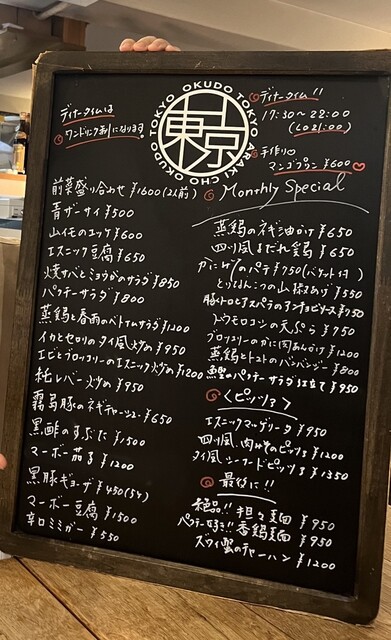 TOKYO OKUDO TOKYO ARAKICHO OKUDO
東京
ディナータイムは
ワンドリンク制になります。
ディナータイム!!
17:30〜22:00
(L.O 21:00)
手作り
マンゴプリン ¥600
前菜盛り合わせ ¥1600(2人前)
青ザーサイ ¥500
山イモのユッケ ¥600
エスニック豆腐 ¥650
焼サバとミョウガのサラダ ¥850
パクチーサラダ ¥800
蒸鶏と春雨のベトナムサラダ ¥1200
イカとセロリのタイ風炒め ¥950
エビとブロッコリーのエスニック炒め ¥1200
純レバー炒め ¥950
霧島豚のネギチャーシュー ¥650
黒酢のすぶた ¥1500
マーボー茄子 ¥1200
黒豚ギョーザ ¥450(5ヶ)
マーボー豆腐 ¥1500
辛口ミミガー ¥550
Monthly Special
蒸鶏のネギ油がけ ¥650
四川風よだれ鶏 ¥650
かにみそのパテ ¥750(バケット付)
とりはんこつの山椒あげ ¥550
豚トロとアスパラのアンチョビソース ¥750
トウモロコシの天ぷら ¥750
ブロッコリーのかに肉あんかけ ¥1200
蒸鶏とトマトのバンバンジー ¥800
のパクチーサラダ仕立て ¥950
<ピッツァ>
エスニックマルゲリータ ¥950
四川風肉みそのピッツァ ¥1200
タイ風シーフードピッツァ ¥1350
最後に!!
絶品!! 担々麺 ¥950
パクチー好き!! 香鶏麺 ¥950
ズワイ蟹のチャーハン ¥1200